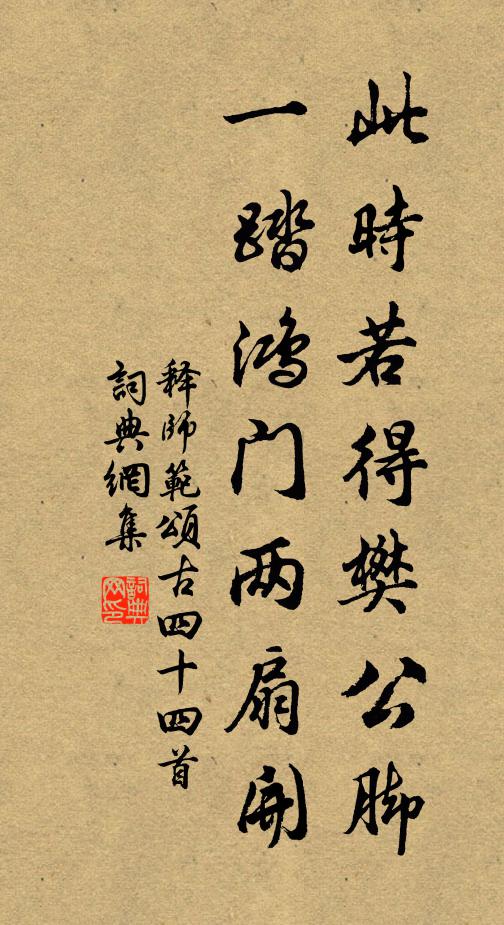 此時若得樊公脚
一踏鸿门两扇開
释師範頌古四十四首
詞典網集
詞典网印